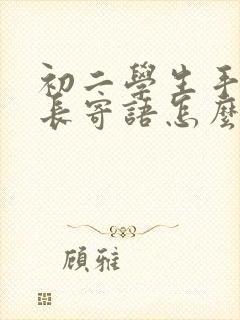 初二學生手
長寄語怎麼
顧雅